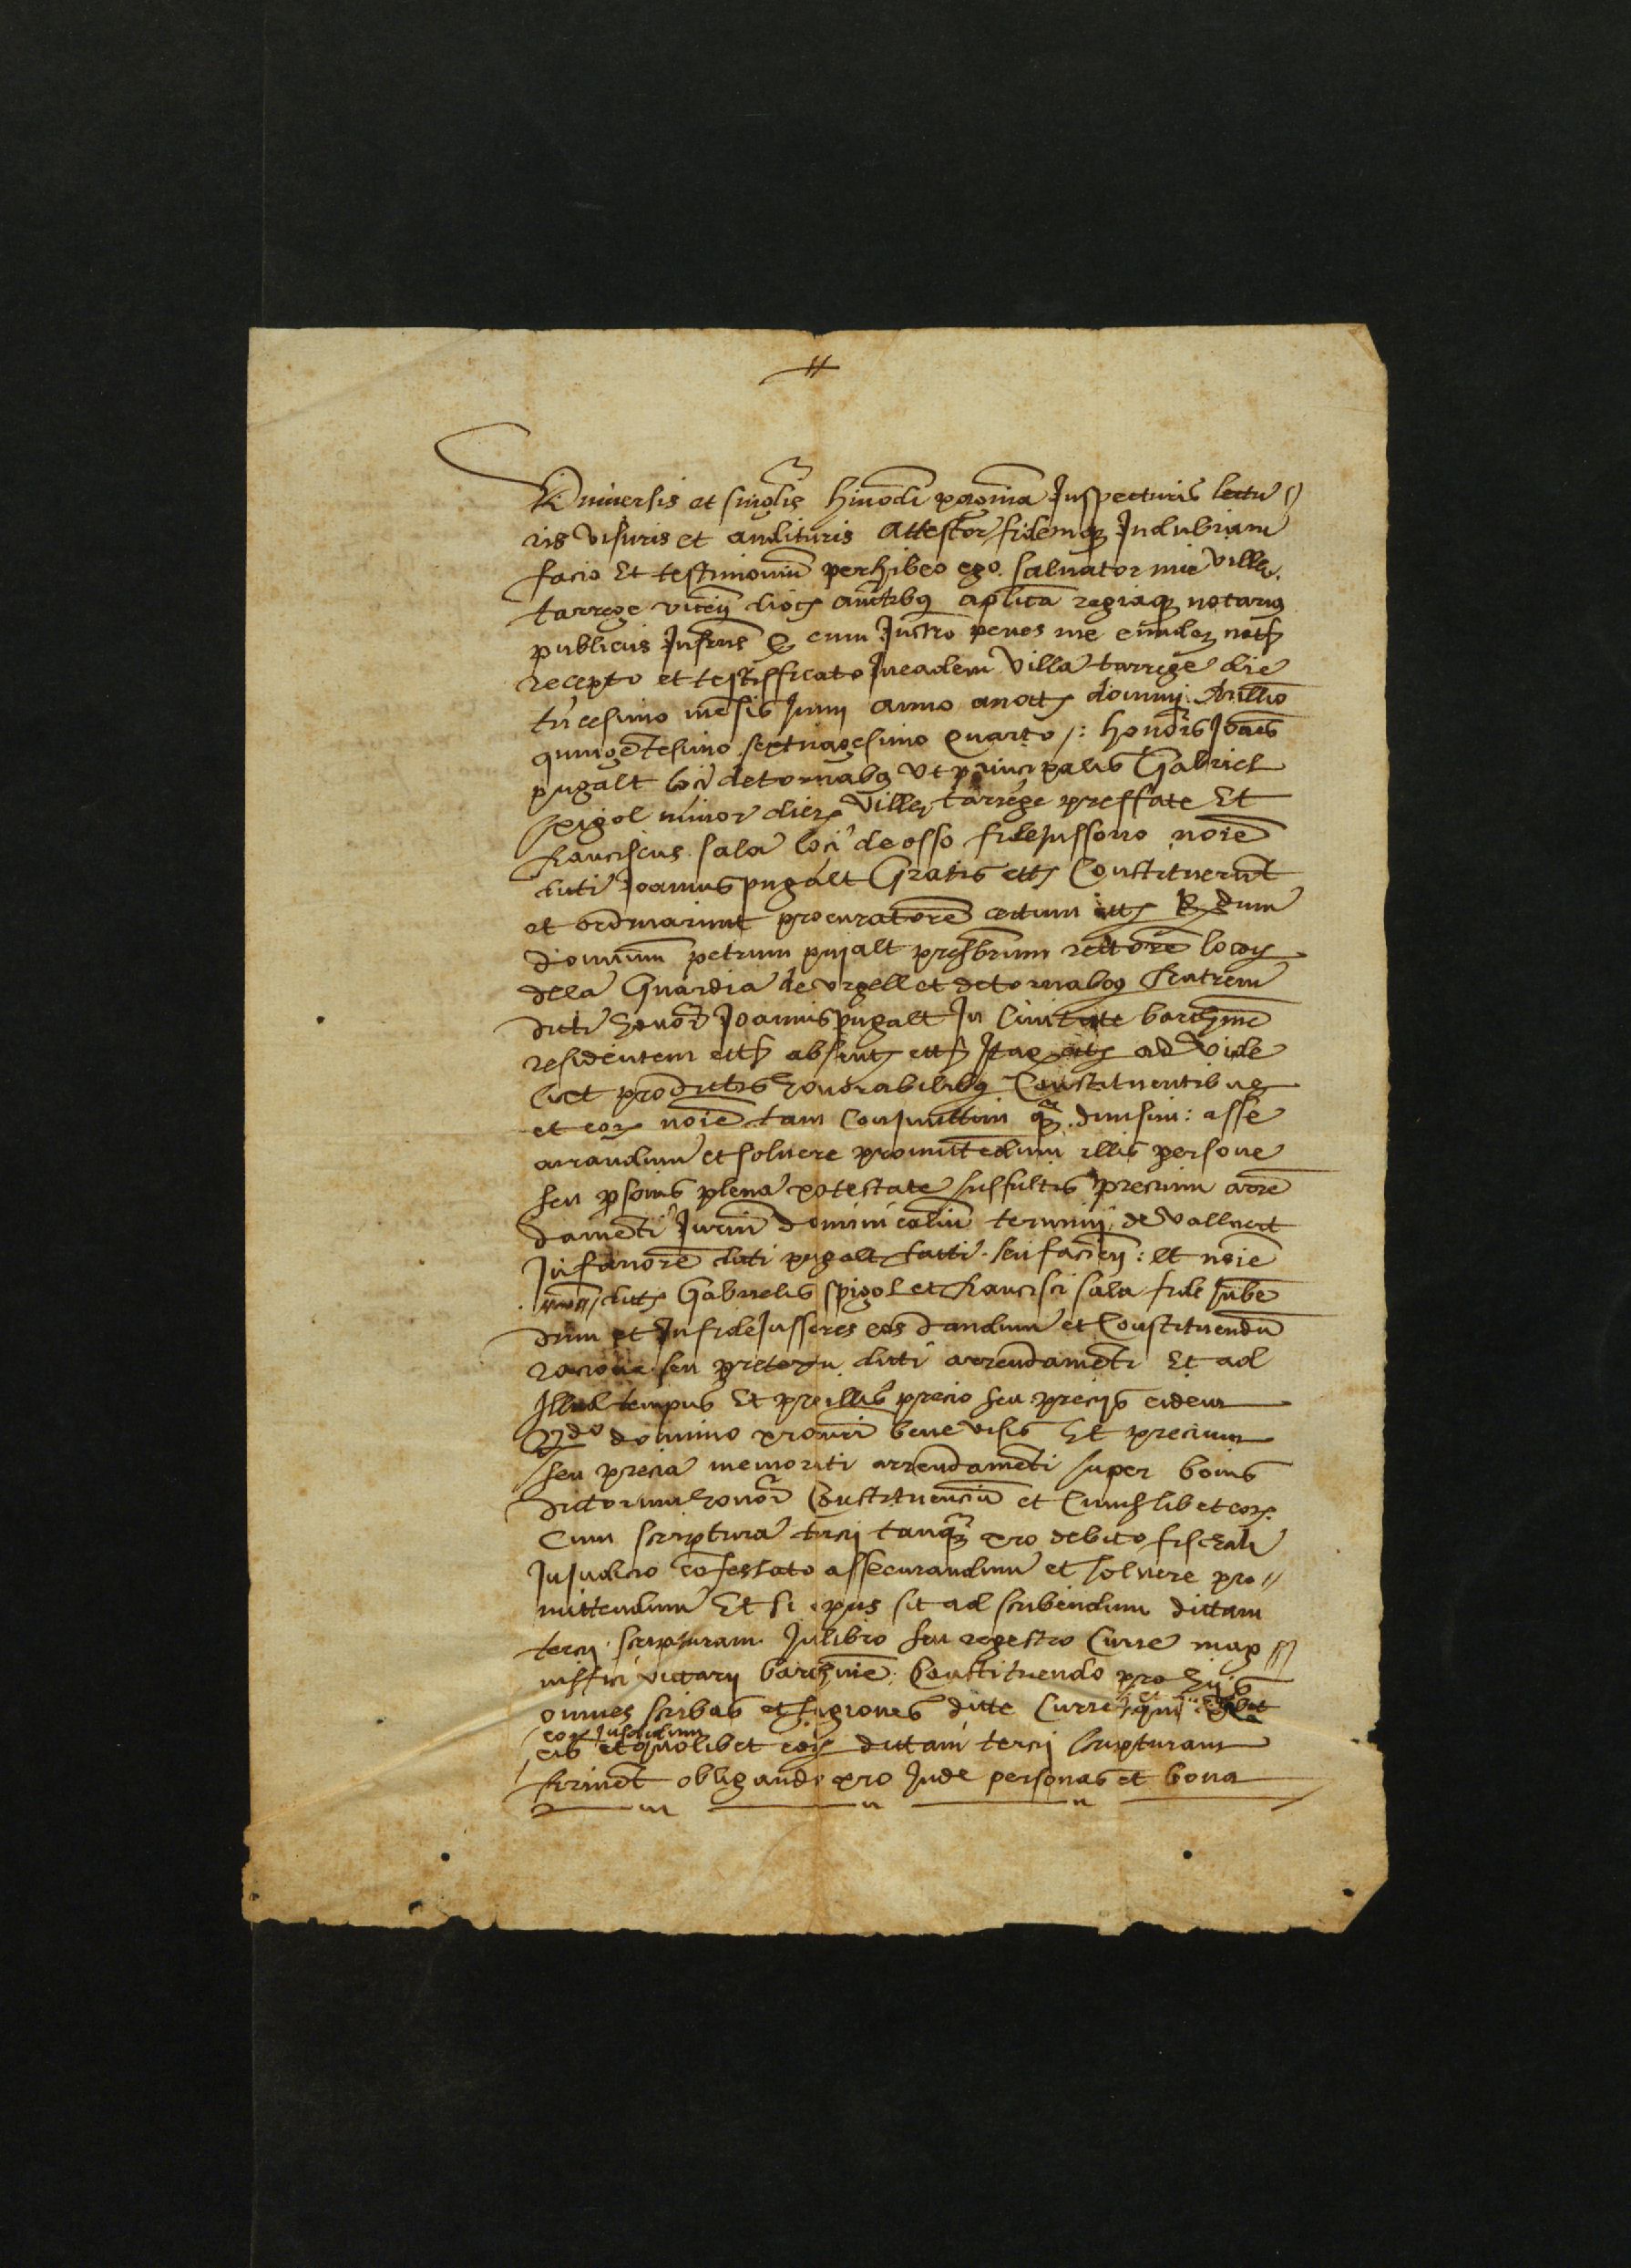 Universis et singlis huiodi paginã Inspecturis lectu//
ris visuris et audituris attestor fidemq Indubiam
facio Et testimoniũ perhibeo ego saluator mir ville
tarrege vicẽn dioc auctbq aplica regiaq notariq
publicus Infrus cum Instro penes me eũndem not
recepto et testifficato Ineadem villa tarrege die
tricesimo mẽsis Junÿ anno anatt dominÿ Millĩo
quingẽtesimo septuagesimo quarto /: honors Joães
pugalt loci detornabq ut principalis Gabriel
spigol minor dier ville tarrege preffate Et
franciscus sala loci de osso fideJussorio noiẽ
dicti Joannis pugalt Gratis ett Constituerũnt
et ordinarunt procuratorẽ certum ett Rdum
dominum petrum pujalt presbrum rectorẽ locor
dela Guardia de vrgell et detornabq fratrem
dicti honor Joannis pugalt In Ciuitate barchne
residentem ett absent ett Itaq ett ad vide
licet prodictis honorabilibq Constituentibus
et eor noiẽ tam Conjunttim q diuisim: asse
curandum et soluere promittẽdum illis persone
seu psonis plena potestate suffultis precium arrẽ
damẽti Jurium dominicaliũ terminÿ de vallvert
In fauorẽ dicti pugalt facti seu faciẽn: et noiẽ
dict Gabrielis spigol et francisci sala fide Jubẽ
dum et In fideJussores eos dandum et Constituendũ
racione seu pretextu dicti arrendamẽti Et ad
Illud tempus Et pro illis precio seu precÿs eidem
Rdo domino procuri bene visis Et precium
seu precia memorati arrendamẽti super bonis
dictorum honor Constituenciũ et Cuiuslibet eor
Cum scriptura tercÿ tanq pro debito fiscali
In Judicio cõfessato assecurandum et soluere pro//
mittendum Et si opus sit ad scribendum dictam
tercÿ scripturam In libro seu regestro Curie mag//
niffici vicarÿ barchne: Constituendo pro hijs
omnes scribas et sagiones dicte Curie qui
eor Insolidum
eis et quolibet eor dictam tercÿ scripturam
firmẽt obligando pro Inde personas et bona